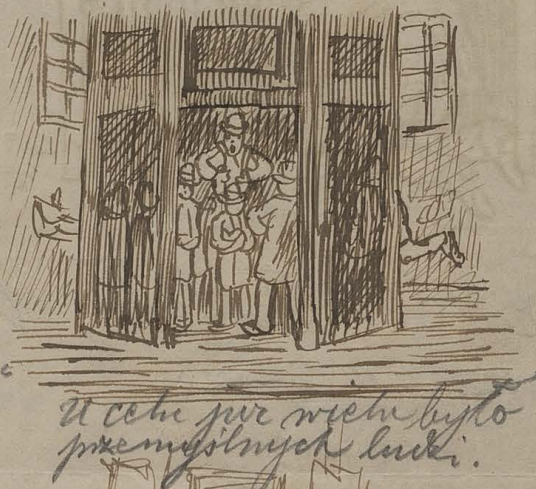 U celu już wielu było
przemyślnych ludzi.